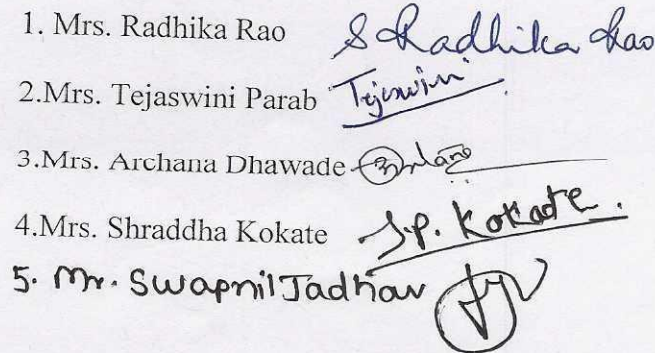 1. Mrs. Radhika Rao S Radhika Rao
2.Mrs. Tejaswini Parab Tejaswini
3.Mrs. Archana Dhawade
4.Mrs. Shraddha Kokate S.P. Kokate.
5. Mr. Swapnil Jadhav